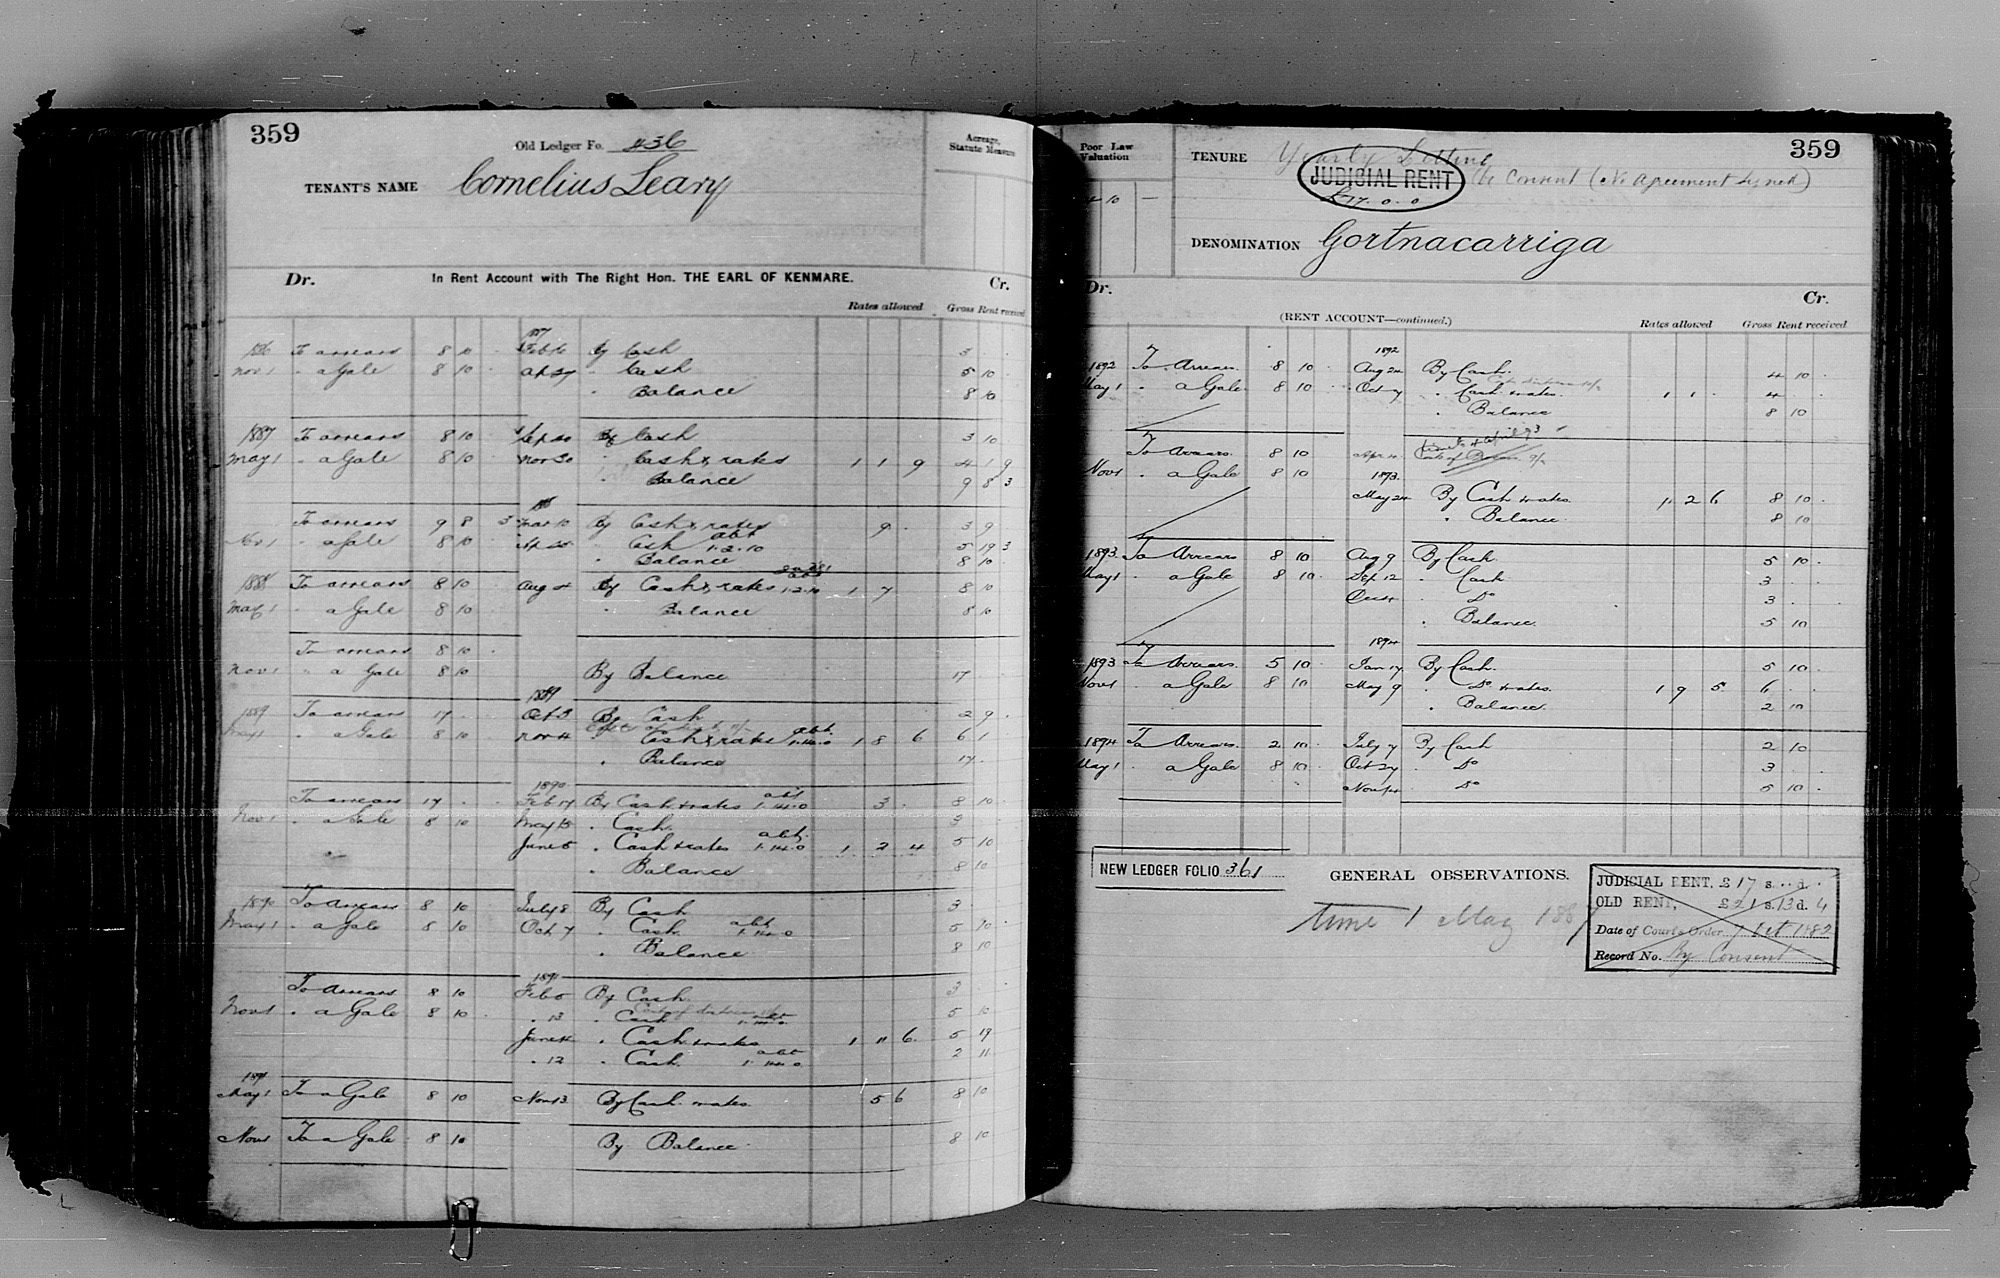 359
Old Ledger Fo. 436
Acreage, Statute Measure
TENANT'S NAME Cornelius Leary
Dr. In Rent Account with The Right Hon. THE EARL OF KENMARE. Cr.
Rates allowed Gross Rent received
1887
1886 To arrears 8 10 Feb 16 By Cash 3
Nov 1 " a Gale 8 10 Cash 5 10
" Balance 8 10
1887 To arrears 8 10 By Cash 3 10
May 1 " a Gale 8 10 Nov 30 " Cash & rates 1 1 9 4 1 9
" Balance 9 8 3
To arrears 9 8 3 Mar 10 By Cash & rates 9 3 9
Nov 1 " a Gale 8 10 " Cash abt 1.2.10 5 19 3
" Balance 8 10
1888 To arrears 8 10 Aug 4 By Cash & rates 1.2.10 1 7 8 10
May 1 " a Gale 8 10 " Balance 8 10
To arrears 8 10
Nov 1 " a Gale 8 10 By Balance 17
1889
1889 To arrears 17 Oct 3 By Cash 2 9
May 1 " a Gale 8 10 Nov 4 " Cash & rates abt 1.14.0 1 8 6 6 1
" Balance 17
1890
To arrears 17 Feb 17 By Cash & rates abt 1.14.0 3 8 10
Nov 1 " a Gale 8 10 May 13 " Cash 3
June 5 " Cash & rates abt 1.14.0 1 2 4 5 10
" Balance 8 10
1890 To Arrears 8 10 July 8 By Cash 3
May 1 " a Gale 8 10 Oct 7 " Cash abt 1.14.0 5 10
" Balance 8 10
1891
To Arrears 8 10 Feb 5 By Cash 3
Nov 1 " a Gale 8 10 " 13 " Cash 1.14.0 5 10
June 4 " Cash & rates 1 11 6 5 19
" 12 " Cash abt 1.14.0 2 11
1891
May 1 To a Gale 8 10 Nov 13 By Cash & rates 5 6 8 10
Nov 1 To a Gale 8 10 By Balance 8 10
Poor Law Valuation
4 10 —
359
TENURE Yearly Letting
JUDICIAL RENT by Consent (No Agreement Signed)
£17.0.0
DENOMINATION Gortnacarriga
Dr. Cr.
(RENT ACCOUNT—continued.)
Rates allowed Gross Rent received
1892
1892 To Arrears 8 10 Aug 24 By Cash 4 10
May 1 " a Gale 8 10 Oct 7 " Cash & rates 1 1 4
" Balance 8 10
To Arrears 8 10
Nov 1 " a Gale 8 10
1893
May 24 By Cash & rates 1 2 6 8 10
" Balance 8 10
1893 To Arrears 8 10 Aug 9 By Cash 5 10
May 1 " a Gale 8 10 Sep 12 " Cash 3
Oct 4 " Do 3
" Balance 5 10
1894
1893 To Arrears 5 10 Jan 17 By Cash 5 10
Nov 1 " a Gale 8 10 May 9 " Do & rates 1 9 5 6
" Balance 2 10
1894 To Arrears 2 10 July 7 By Cash 2 10
May 1 a Gale 8 10 Oct 27 " Do 3
Nov 14 " Do 5 10
NEW LEDGER FOLIO 361
GENERAL OBSERVATIONS.
time 1 May 1887
JUDICIAL RENT, £17 s. d.
OLD RENT, £21 s. 13 d. 4
Date of Court's Order 7 Oct 1882
Record No. By Consent